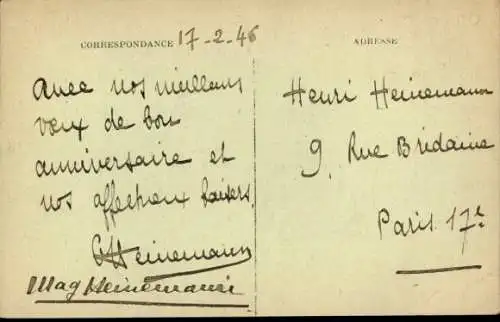 CORRESPONDANCE 17-2-46
Avec nos meilleurs
vœux de bon
anniversaire et
nos affectueux baisers.
GHeinemann
Mag Heinemann
ADRESSE
Henri Heinemann
9, Rue Bridaine
Paris 17e